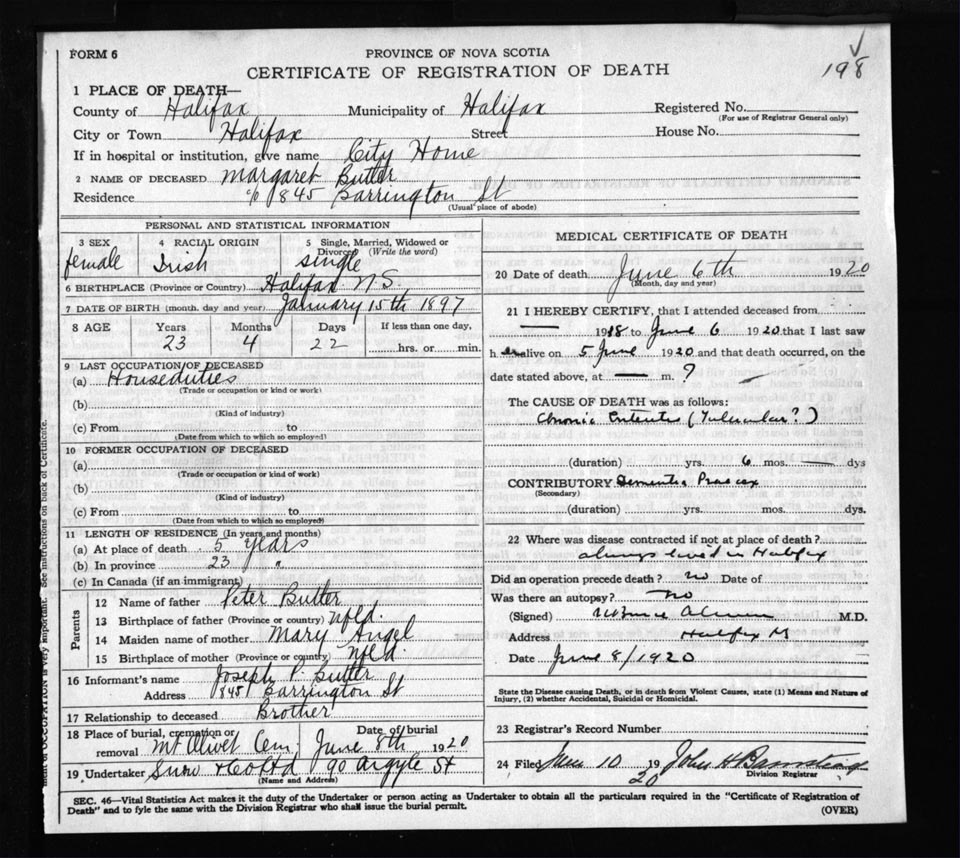 FORM 6
PROVINCE OF NOVA SCOTIA
198
CERTIFICATE OF REGISTRATION OF DEATH
1 PLACE OF DEATH—
County of Halifax Municipality of Halifax Registered No.
(For use of Registrar General only)
City or Town Halifax Street House No.
If in hospital or institution, give name City Home
2 NAME OF DECEASED Margaret Butler
Residence c/o 845 Barrington St
(Usual place of abode)
PERSONAL AND STATISTICAL INFORMATION
3 SEX 4 RACIAL ORIGIN 5 Single, Married, Widowed or Divorced (Write the word)
female Irish single
6 BIRTHPLACE (Province or Country) Halifax N.S.
7 DATE OF BIRTH (month, day and year) January 15th 1897
8 AGE Years Months Days If less than one day,
23 4 22 hrs. or min.
9 LAST OCCUPATION OF DECEASED
(a) Houseduties
(Trade or occupation or kind or work)
(b)
(Kind of industry)
(c) From to
(Date from which to which so employed)
10 FORMER OCCUPATION OF DECEASED
(a)
(Trade or occupation or kind of work)
(b)
(Kind of industry)
(c) From to
(Date from which to which so employed)
11 LENGTH OF RESIDENCE (In years and months)
(a) At place of death 5 years
(b) In province 23 "
(c) In Canada (if an immigrant)
Parents
12 Name of father Peter Butler
13 Birthplace of father (Province or country) Nfld.
14 Maiden name of mother Mary Angel
15 Birthplace of mother (Province or country) Nfld.
16 Informant's name Joseph P. Butler
Address 845 Barrington St
17 Relationship to deceased Brother
18 Place of burial, cremation or Date of burial
removal Mt Olivet Cem June 8th 1920
19 Undertaker Snow & Co Ltd 90 Argyle St
(Name and Address)
MEDICAL CERTIFICATE OF DEATH
20 Date of death June 6th 1920
(Month, day and year)
21 I HEREBY CERTIFY, that I attended deceased from
— 1918 to June 6 1920 that I last saw
h er alive on 5 June 1920 and that death occurred, on the
date stated above, at — m. ?
The CAUSE OF DEATH was as follows:
Chronic Enteritis (Tubercular?)
(duration) yrs. 6 mos. — dys
CONTRIBUTORY Dementia Praecox
(Secondary)
(duration) yrs. mos. dys.
22 Where was disease contracted if not at place of death?
always lived in Halifax
Did an operation precede death? no Date of
Was there an autopsy? no
(Signed) M.D.
Address Halifax
Date June 8/1920
State the Disease causing Death, or in death from Violent Causes, state (1) Means and Nature of
Injury, (2) whether Accidental, Suicidal or Homicidal.
23 Registrar's Record Number
24 Filed June 10 1920 John H Barnstead
Division Registrar
SEC. 46—Vital Statistics Act makes it the duty of the Undertaker or person acting as Undertaker to obtain all the particulars required in the "Certificate of Registration of
Death" and to fyle the same with the Division Registrar who shall issue the burial permit.
(OVER)
ment of OCCUPATION is very important. See instructions on back of Certificate.